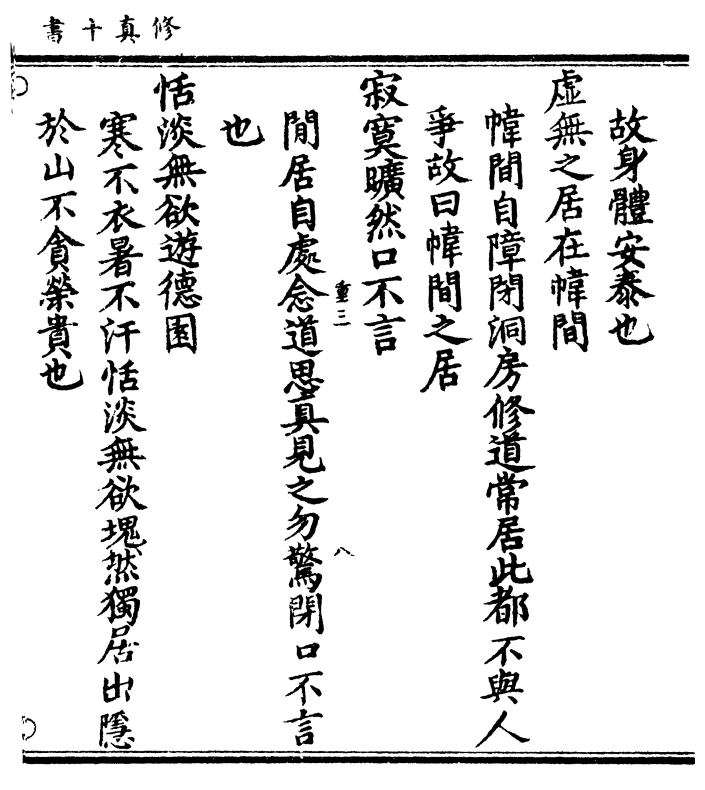 修真十書
故身體安泰也
虛無之居在幃間
幃間自障閉洞房修道常居此都不與人
爭故曰幃間之居
寂寞曠然口不言
重三
八
閒居自處念道思真見之勿驚閉口不言
也
恬淡無欲遊德園
寒不衣暑不汗恬淡無欲塊然獨居出隱
於山不貪榮貴也